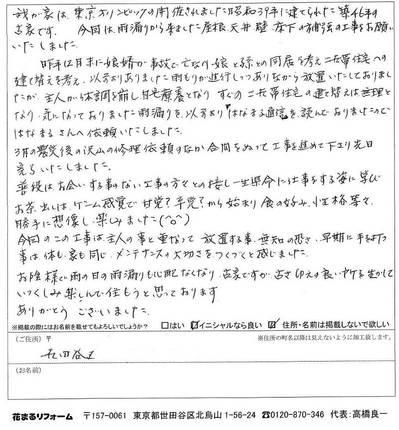 我が家は、東京オリンピックの開催されました昭和39年に建てられた築46年の
古家です。 今回は、雨漏りから来ました屋根 天井 壁 床下の補強の工事をお願
いたしました。
昨年12月末に娘婿が事故で亡くなり、娘と孫との同居を考え二世帯住宅への
建て替えを考え、以前よりありました雨もりが進行しつつありながら放置いたしておりまし
たが、主人が体調を崩し自宅療養となり すぐの二世帯住宅の建て替えは無理と
なり、気になっておりました雨漏りを、以前より「はなまる通信」を読んでおりましたので
はなまるさんへ依頼いたしました。
3月の震災後の沢山の修理依頼のなか合間をぬって工事を進めて下さり先日
完了いたしました。
普段はお会いする事のない工事の方々との接し一生懸命に仕事をする姿に学び
お茶出しは、ゲーム感覚で 甘党？辛党？から始まり 食の好み、性格等々、
勝手に想像し楽しみました(^o^)
今回のこの工事は主人の事と重なって 放置する事、無知の恐さ、早期に手を打つ
事は体も家も同じ、メンテナンスの大切さをつくづくと感じました。
お陰様で雨の日の雨漏りも心配なくなり、古家ですが 古さゆえの良いところを生かして
いつくしみ楽しんで住もうと思っております
ありがとうございました。
※掲載の際にはお名前を載せてもよろしいでしょうか？ □はい ☑イニシャルなら良い ☑住所・名前は掲載しないで欲しい
（ご住所）〒 ※住所の町名以降は見えないように加工致します。
世田谷区
（お名前）
花まるリフォーム 〒157-0061 東京都世田谷区北烏山1-56-24 ☎0120-870-346 代表：高橋良一